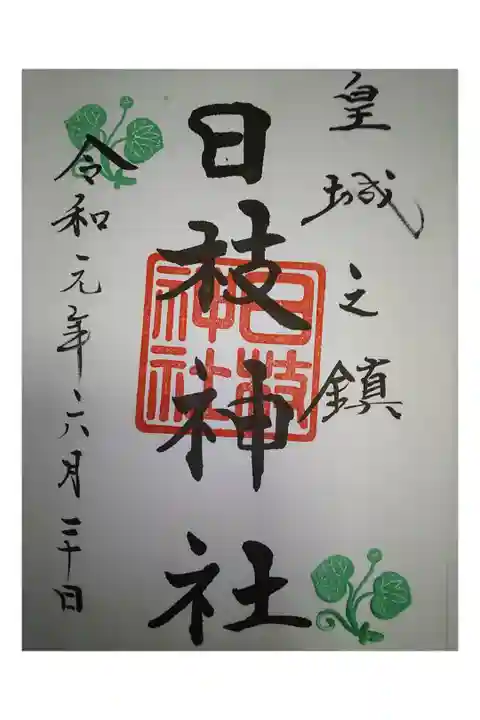 皇城之鎮
日枝神社
日枝神社
令和元年六月三十日